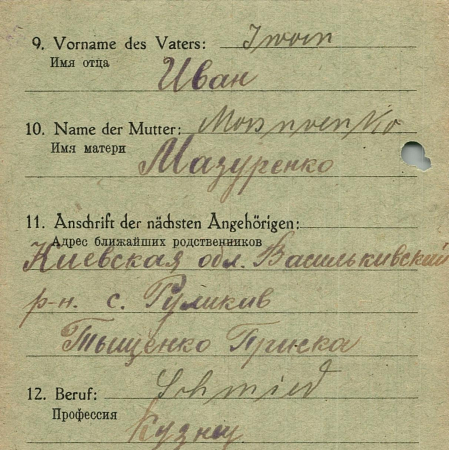 9. Vorname des Vaters: Iwan
Имя отца
Иван
10. Name der Mutter:
Имя матери
Мазуренко
11. Anschrift der nächsten Angehörigen:
Адрес ближайших родственников
Киевская обл. Василькивский
р-н. с. Руликив
Тыщенко Принка
12. Beruf: Schmied
Профессия
Кузнец